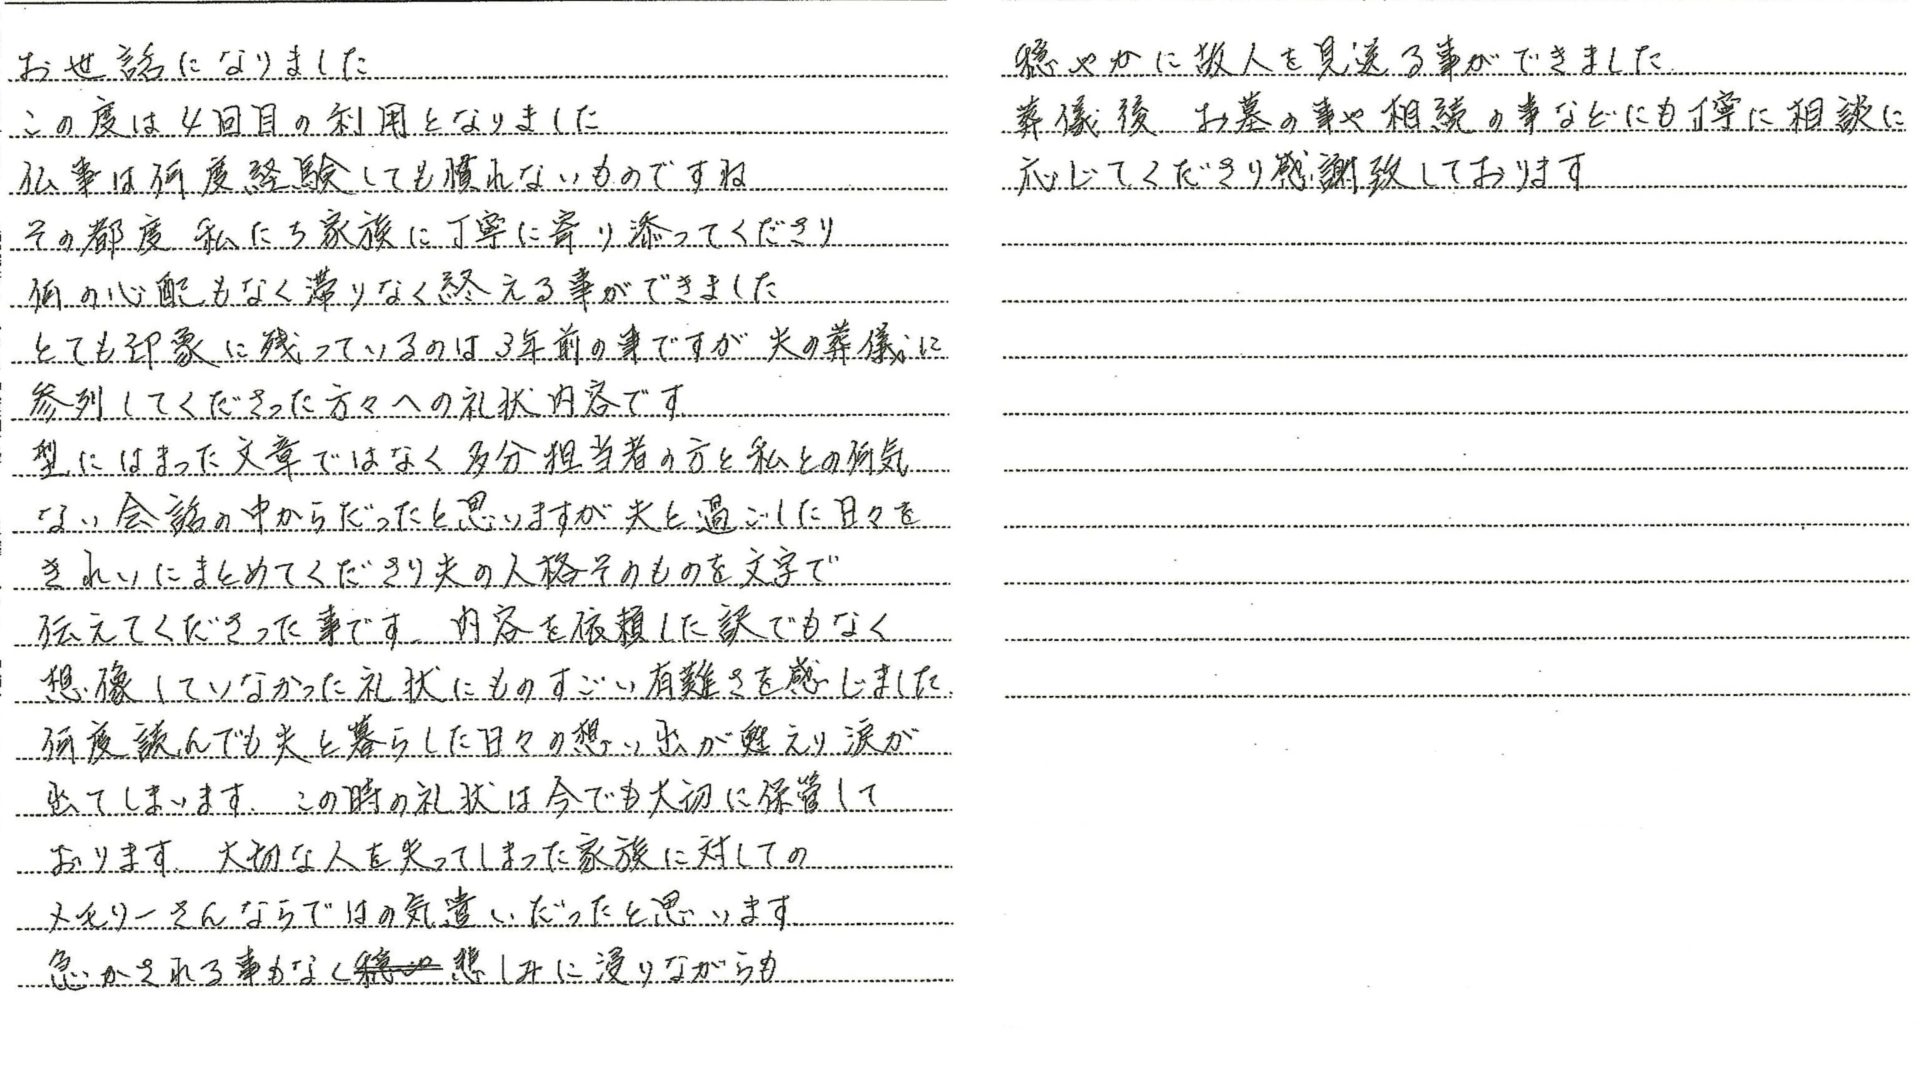 お世話になりました
この度は4回目の利用となりました
仏事は何度経験しても慣れないものですね
その都度 私たち家族に丁寧に寄り添ってくださり
何の心配もなく滞りなく終える事ができました
とても印象に残っているのは3年前の事ですが 夫の葬儀に
参列してくださった方々への礼状内容です
型にはまった文章ではなく多分担当者の方と私との何気
ない会話の中からだったと思いますが夫と過ごした日々を
きれいにまとめてくださり夫の人格そのものを文字で
伝えてくださった事です。内容を依頼した訳でもなく
想像していなかった礼状にものすごい有難さを感じました。
何度読んでも夫と暮らした日々の想い出が甦えり涙が
出てしまいます。この時の礼状は今でも大切に保管して
おります。大切な人を失ってしまった家族に対しての
メモリーさんならではの気遣いだったと思います
急かされる事もなく穏や悲しみに浸りながらも
穏やかに故人を見送る事ができました
葬儀後 お墓の事や相続の事などにも丁寧に相談に
応じてくださり感謝致しております